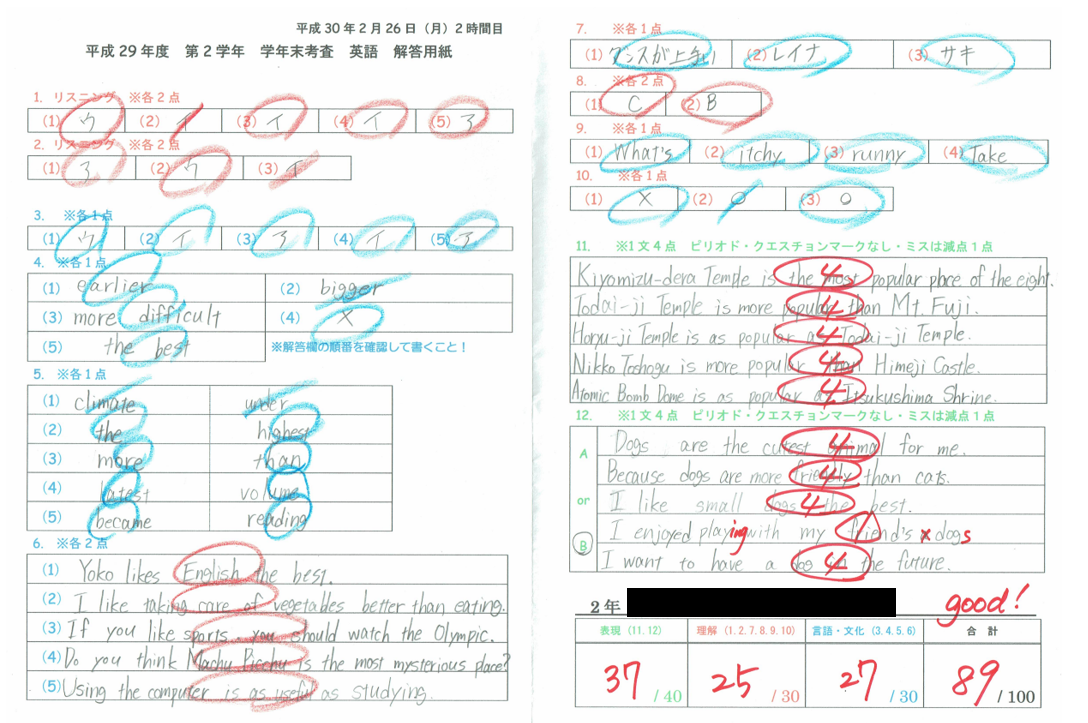 平成30年2月26日（月）2時間目
平成29年度 第2学年 学年末考査 英語 解答用紙
1. リスニング ※各2点
(1) ウ (2) イ (3) イ (4) イ (5) ア
2. リスニング ※各2点
(1) ア (2) ウ (3) イ
3. ※各1点
(1) ウ (2) イ (3) ア (4) イ (5) ア
4. ※各1点
(1) earlier (2) bigger
(3) more difficult (4) ×
(5) the best ※解答欄の順番を確認して書くこと！
5. ※各1点
(1) climate under
(2) the highest
(3) more than
(4) latest volume
(5) became reading
6. ※各2点
(1) Yoko likes English the best.
(2) I like taking care of vegetables better than eating.
(3) If you like sports, you should watch the Olympic.
(4) Do you think Machu Picchu is the most mysterious place?
(5) Using the computer is as useful as studying.
7. ※各1点
(1) ダンスが上手い (2) レイナ (3) サキ
8. ※各2点
(1) C (2) B
9. ※各1点
(1) What's (2) itchy (3) runny (4) Take
10. ※各1点
(1) × (2) ○ (3) ○
11. ※1文4点 ピリオド・クエスチョンマークなし・ミスは減点1点
Kiyomizu-dera Temple is the most popular place of the eight.
4
Todai-ji Temple is more popular than Mt. Fuji.
4
Horyu-ji Temple is as popular as Todai-ji Temple.
4
Nikko Toshogu is more popular than Himeji Castle.
4
Atomic Bomb Dome is as popular as Itsukushima Shrine.
4
12. ※1文4点 ピリオド・クエスチョンマークなし・ミスは減点1点
A Dogs are the cutest animal for me.
4
Because dogs are more friendly than cats.
4
or I like small dogs the best.
4
I enjoyed playing with my friend's × dogs
1
B I want to have a dog in the future.
4
2年 good!
表現（11.12） 理解（1.2.7.8.9.10） 言語・文化（3.4.5.6） 合計
37 / 40 25 / 30 27 / 30 89 / 100